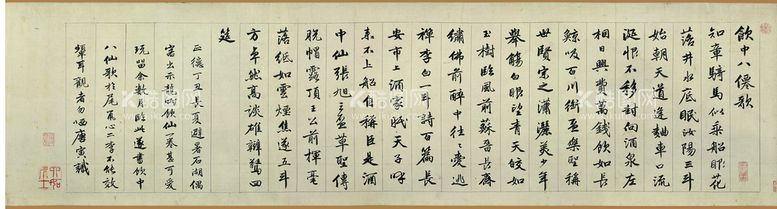 飲中八僊歌
知章騎馬似乘船眼花
落井水底眠汝陽三斗
始朝天道逢麴車口流
涎恨不移封向酒泉左
相日興費萬錢飲如長
鯨吸百川銜盃樂聖稱
世賢宗之瀟灑美少年
舉觴白眼望青天皎如
玉樹臨風前蘇晉長齋
繡佛前醉中往往愛逃
禪李白一斗詩百篇長
安市上酒家眠天子呼
來不上船自稱臣是酒
中仙張旭三盃草聖傳
脫帽露頂王公前揮毫
落紙如雲煙焦遂五斗
方卓然高談雄辯驚四
筵
正德丁丑長夏避暑石湖偶
客出示龍眠飲仙一卷甚可愛
玩留余數月臨此遂書飲中
八仙歌於尾心三不能效
顰耳觀者勿哂唐寅識